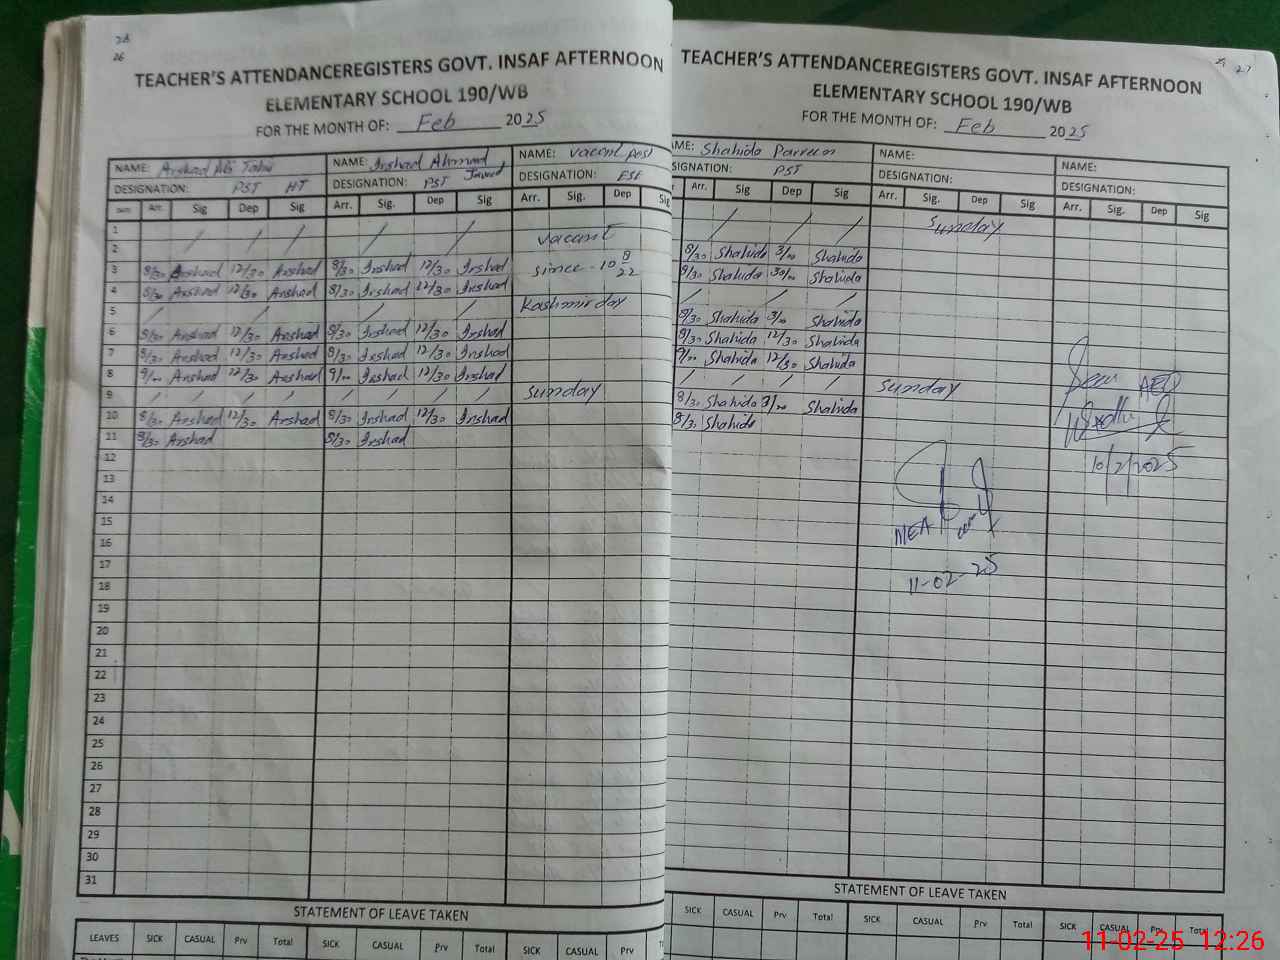 28
26
TEACHER'S ATTENDANCEREGISTERS GOVT. INSAF AFTERNOON
ELEMENTARY SCHOOL 190/WB
FOR THE MONTH OF: Feb 2025
NAME: Arshad Ali Tahir NAME: Irshad Ahmad Javed NAME: Vacant Post
DESIGNATION: PST HT DESIGNATION: PST DESIGNATION: ESE
DATE Arr. Sig Dep Sig Arr. Sig. Dep Sig Arr. Sig. Dep Sig
1 / / / / /
2 Vacant
3 8/30 Arshad 12/30 Arshad 8/30 Irshad 12/30 Irshad since - 10 8/22
4 8/30 Arshad 12/30 Arshad 8/30 Irshad 12/30 Irshad
5 / / / / Kashmir day
6 8/30 Arshad 12/30 Arshad 8/30 Irshad 12/30 Irshad
7 8/30 Arshad 12/30 Arshad 8/30 Irshad 12/30 Irshad
8 9/00 Arshad 12/30 Arshad 9/00 Irshad 12/30 Irshad
9 / / / / / / / / Sunday
10 8/30 Arshad 12/30 Arshad 8/30 Irshad 12/30 Irshad
11 8/30 Arshad 8/30 Irshad
12
13
14
15
16
17
18
19
20
21
22
23
24
25
26
27
28
29
30
31
STATEMENT OF LEAVE TAKEN
LEAVES SICK CASUAL Prv Total SICK CASUAL Prv Total SICK CASUAL Prv
27
TEACHER'S ATTENDANCEREGISTERS GOVT. INSAF AFTERNOON
ELEMENTARY SCHOOL 190/WB
FOR THE MONTH OF: Feb 2025
AME: Shahida Parveen NAME: NAME:
ESIGNATION: PST DESIGNATION: DESIGNATION:
Arr. Sig Dep Sig Arr. Sig. Dep Sig Arr. Sig. Dep Sig
/ / / Sunday
8/30 Shahida 3/00 Shahida
8/30 Shahida 30/00 Shahida
/ / /
8/30 Shahida 3/00 Shahida
8/30 Shahida 12/30 Shahida
9/00 Shahida 12/30 Shahida
/ / / / Sunday
8/30 Shahida 3/00 Shahida
8/30 Shahida
AEO
10/2/2025
MEA
11-02-25
STATEMENT OF LEAVE TAKEN
SICK CASUAL Prv Total SICK CASUAL Prv Total SICK CASUAL Prv Total
11-02-25 12:26